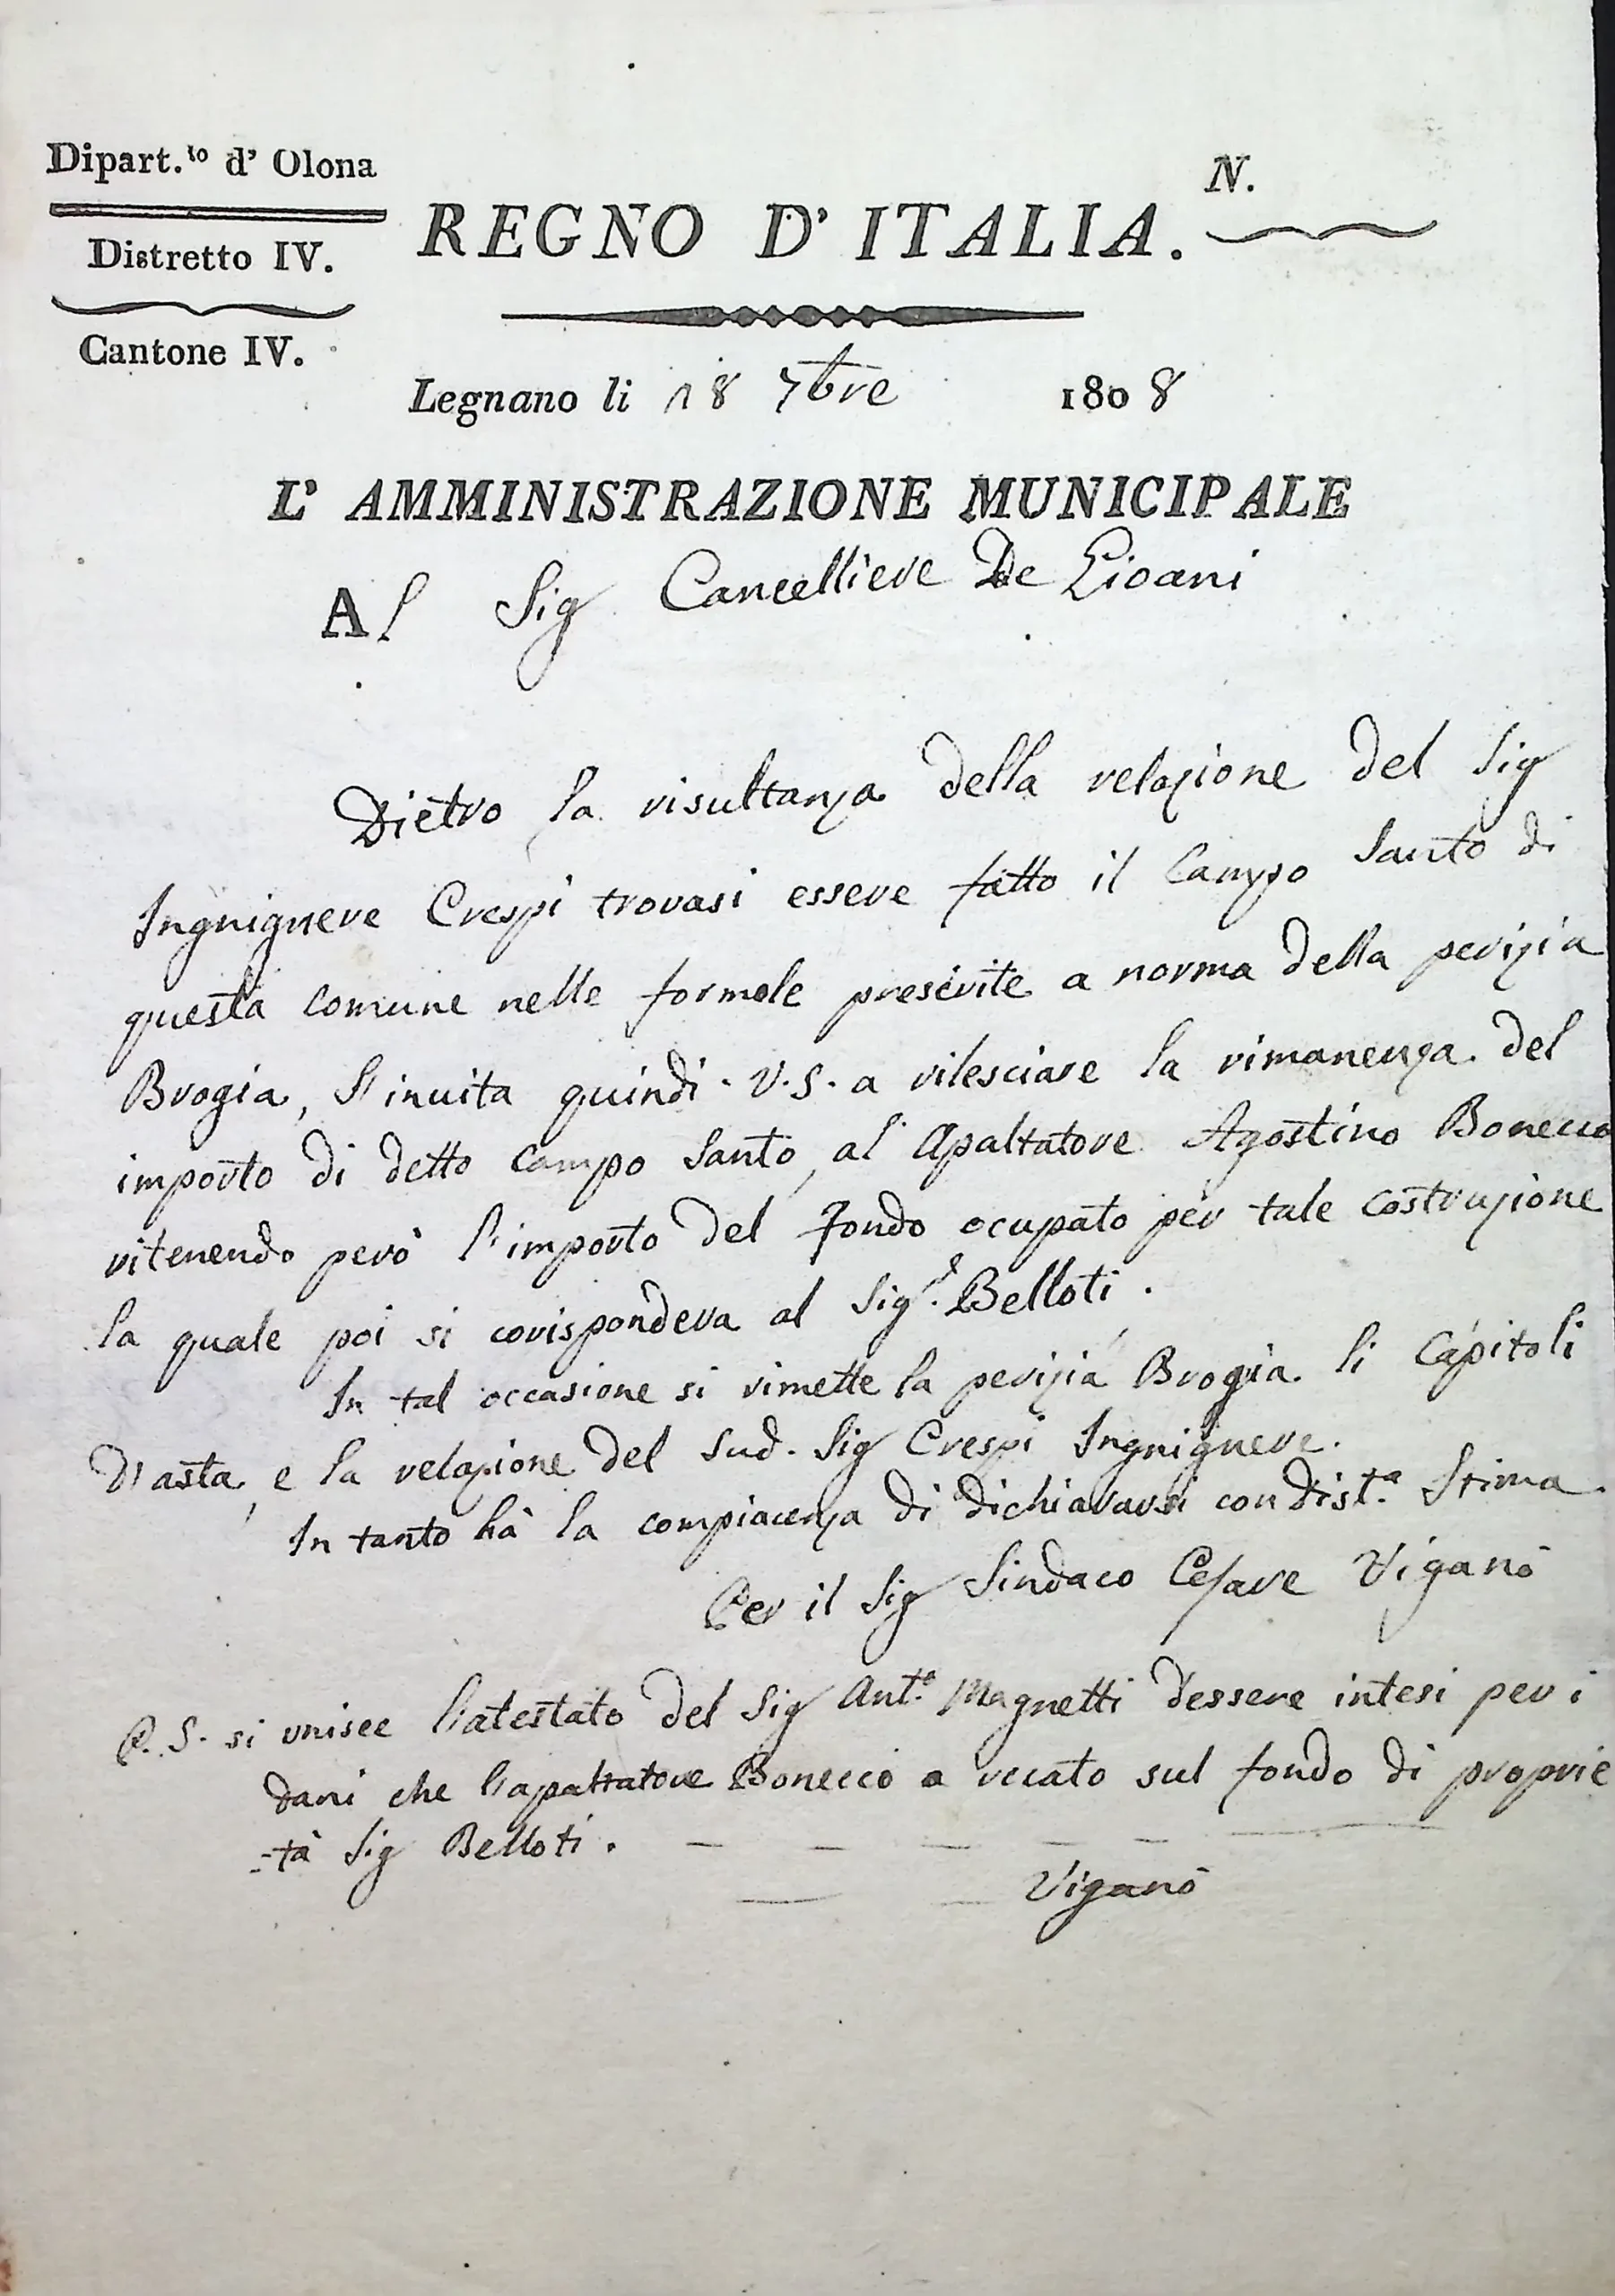 Dipart.to d' Olona
Distretto IV.
Cantone IV.
N.
REGNO D' ITALIA.
Legnano li 18 7bre 1808
L' AMMINISTRAZIONE MUNICIPALE
Al Sig Cancelliere De Gioani
Dietro la risultanza della relazione del Sig
Ingnignere Crespi trovasi essere fatto il Campo Santo di
questa comune nelle formole prescrite a norma della perizia
Brogia, S'invita quindi V.S. a rilesciare la rimanenza del
importo di detto Campo Santo, al Apaltatore Agostino Bonecco
ritenendo però l'importo del fondo ocupato per tale costruzione
la quale poi si corispondera al Sigr. Belloti.
In tal occasione si rimette la perizia Brogia li Capitoli
D'asta, e la relazione del Sud. Sig Crespi Ingnignere.
In tanto hà la compiacenza di dichiararsi con dist.a Stima
Per il Sig Sindaco Cesare Viganò
P.S. si unisce l'atestato del Sig Ant.o Magnetti d'essere intesi per i
dani che l'apaltatore Bonecco a recato sul fondo di proprie
-tà Sig Belloti.
Viganò